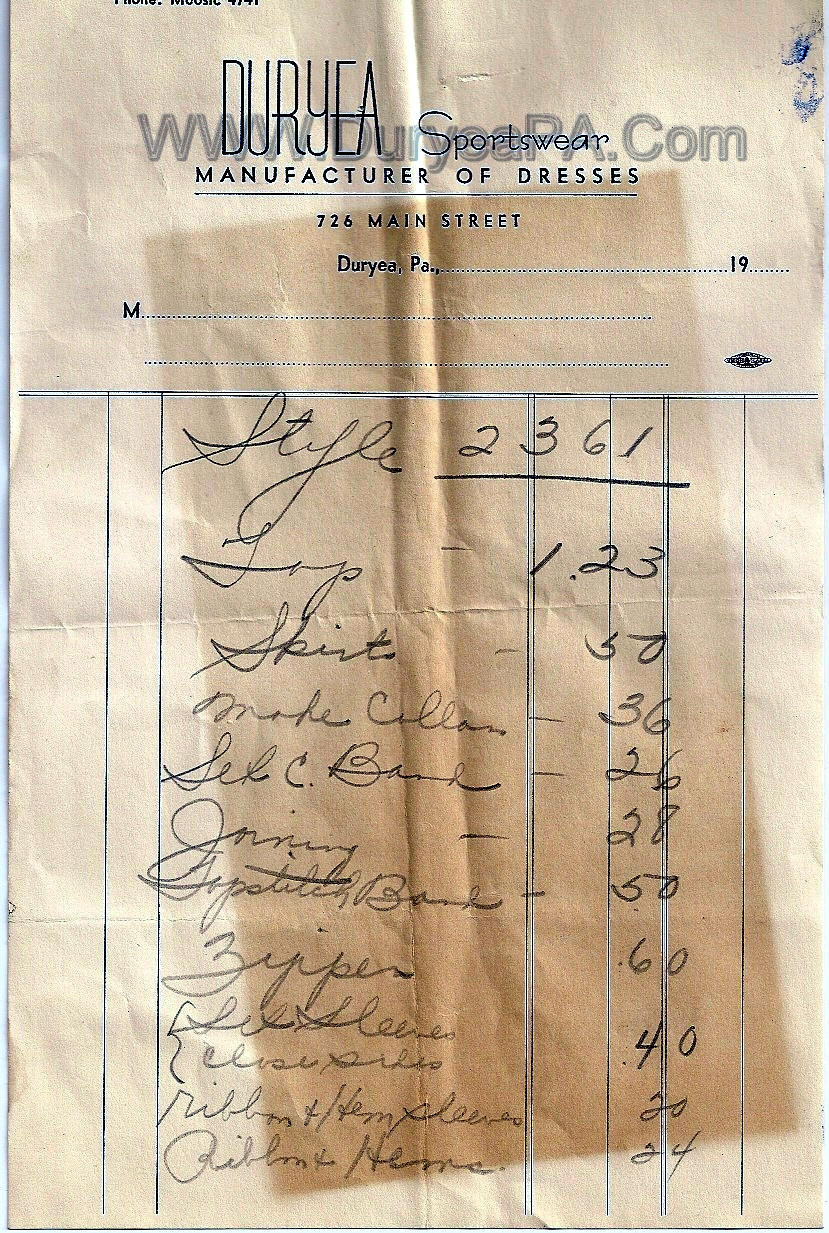 Phone: Moosic 4741
DURYEA Sportswear
www.DuryeaPA.Com
MANUFACTURER OF DRESSES
726 MAIN STREET
Duryea, Pa., 19
M
Style 2361
Top - 1.23
Skirt - 50
Make Collar - 36
Set C. Band - 26
Joining - 28
Topstitch Band - 50
Zipper .60
Set Sleeves
Close sides .40
Ribbon & Hem sleeves 20
Ribbon & Hems. 24